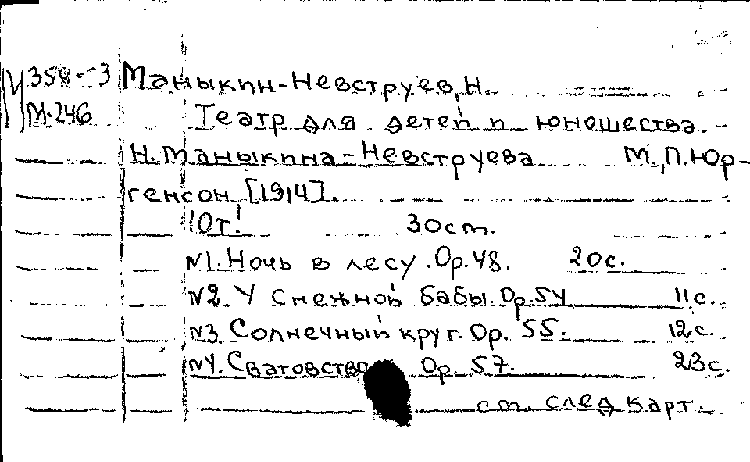 М 358-3 Маныкин-Невструев, Н.
М-246 Театр для детей и юношества.-
Н. Маныкина-Невструева М., П. Юр-
генсон [1914].
!От! 30 ст.
№1. Ночь в лесу. Ор. 48. 20 с.
№2. У снежной бабы. Ор. 54 11 с.
№3. Солнечный круг. Ор. 55. 12 с.
№4. Сватовство Ор. 57. 23 с.
ст. след карт.